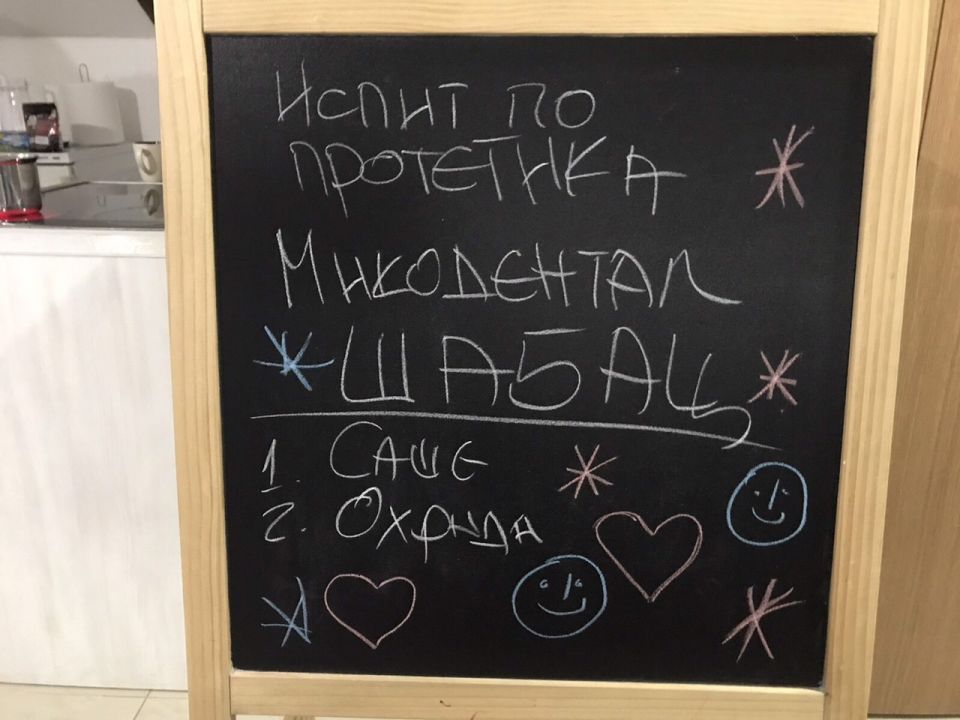 Испит по
протетика
Микодентал
ШАБАЦ
1. Саше
2. Охрида